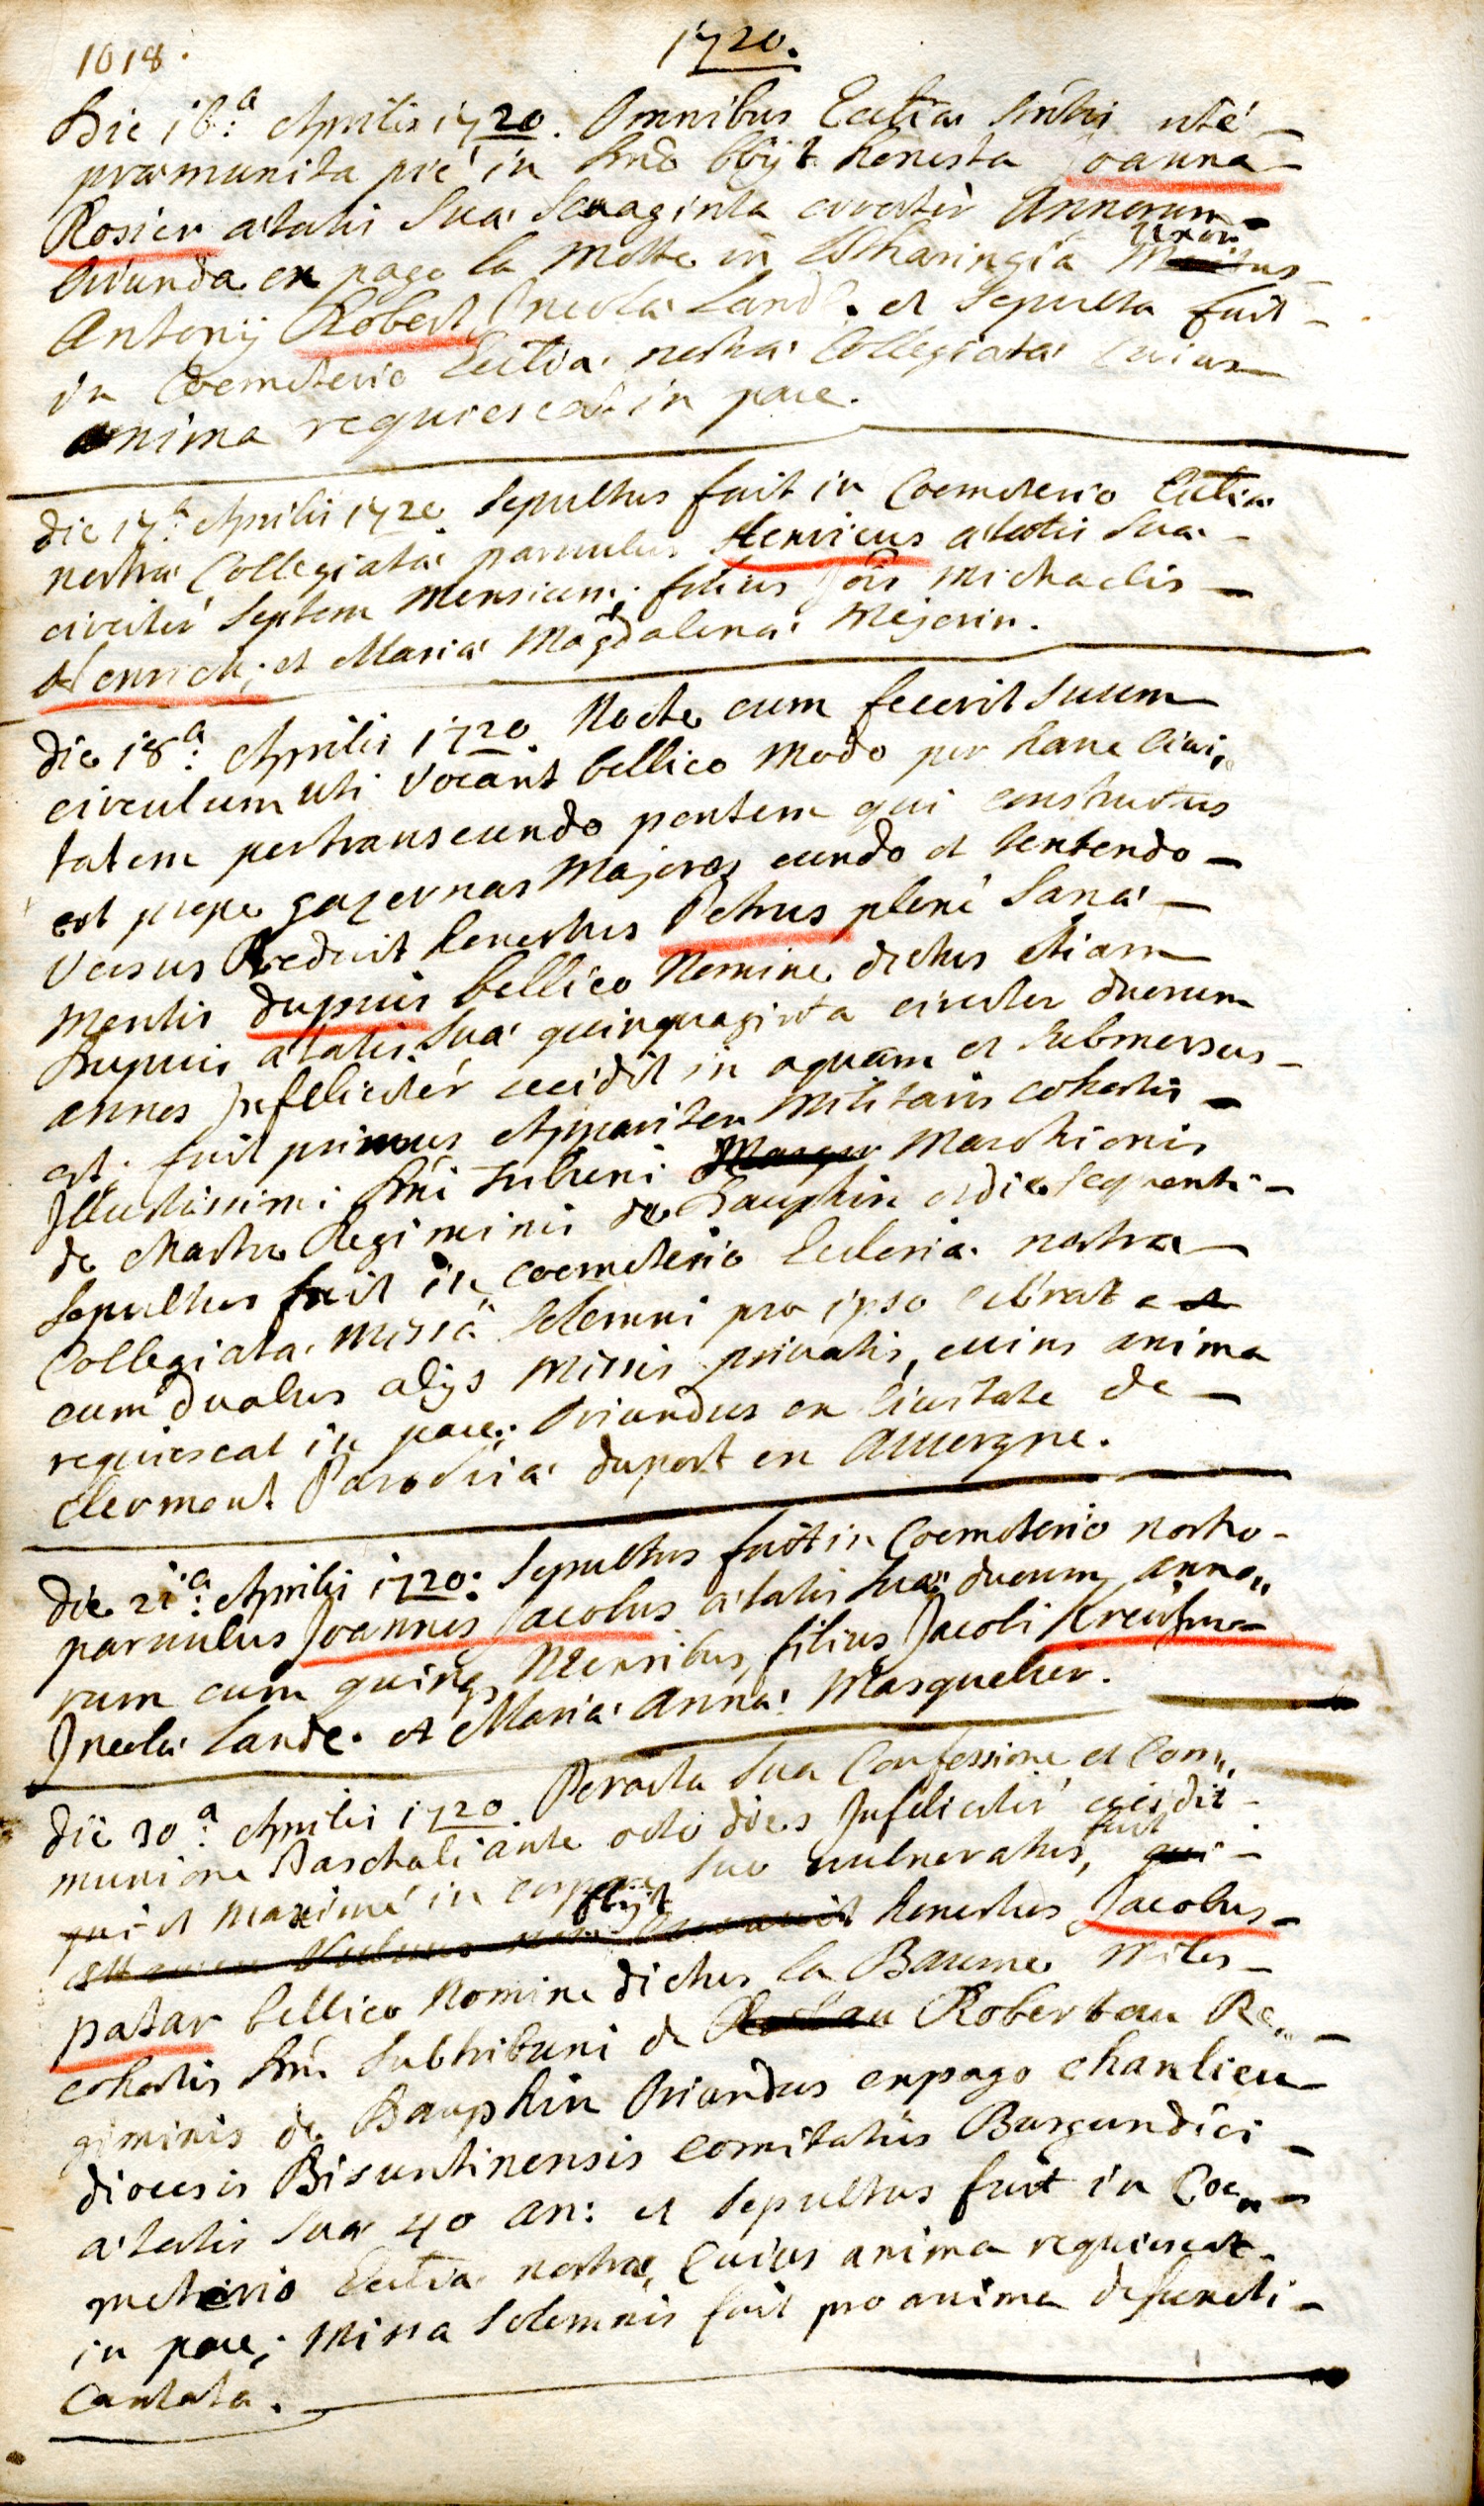 1018.
1720.
Die 16.a Aprilis 1720. Omnibus Ecctiæ Smtis rité
præmunita pié in Dno obijt honesta Joanna
Rosier ætatis Suæ Sexaginta circitèr Annorum
Oriunda ex pago la Motte in Lotharingia Uxor
Antonij Robert Incolæ Land. et Sepulta fuit
in Coemeterio Ecctiæ nostræ Collegiatæ Cuius
anima requiescat in pace.
Die 17.a Aprilis 1720 Sepultus fuit in Coemeterio Ecctiæ
nostræ Collegiatæ parvulus Henricus ætatis Suæ
circiter Septem Mensium, filius Jois Michaelis
Henrich; et Mariæ Magdalenæ Mejerin.
Die 18.a Aprilis 1720. Nocte cum fecerit Suum
circulum uti Vocant bellico Modo per hanc Civi„
tatem pertranseundo pontem qui constructus
est prope gazernas Majores eundo et tentendo
Versus Reduit honestus Petrus plené Sanæ
Mentis dupuis bellico Nomine dictus etiam
Dupuis ætatis Suæ quinquaginta circiter duorum
annos Infelicitér cecidit in aquam et Submersus
est. fuit primus Apparitor Militaris cohortis
Illustrissimi Dni tribuni Marchionis
de Maitre Regiminis de Dauphin et die Sequenti
Sepultus fuit in Coemeterio Ecclesiæ nostræ
Collegiatæ Missa Solemni pro ipso celebrata
cum duabus alijs Missis privatis, cuius anima
requiescat in pace; Oriundus ex Civitate de
Clermont Parochia duport en Auvergne.
Die 21.a Aprilis 1720: Sepultus fuit in Coemeterio nostro
parvulus Joannes Jacobus ætatis Suæ duorum anno„
rum cum quinq Mensibus, filius Jacobi
Incolæ Lande. et Mariæ Annæ Masquelier.
Die 30.a Aprilis 1720 Peracta Sua Confessione et Com„
munione Paschali ante octo dies Infelicitér cecidit
et maximé in corpore Suo vulneratus, fuit
obijt honestus Jacobus
patar bellico Nomine dictus la Baume Miles
cohortis Dni Subtribuni de Roberteau Re„
giminis de Dauphin Oriundus ex pago Chanlieu
diocesis Bisuntinensis Comitatûs Burgundici
ætatis Suæ 40 an: et Sepultus fuit in Coe„
meterio Ecctiæ nostræ, Cuius anima requiescat
in pace; Missa Solemnis fuit pro anima defuncti
Cantata.